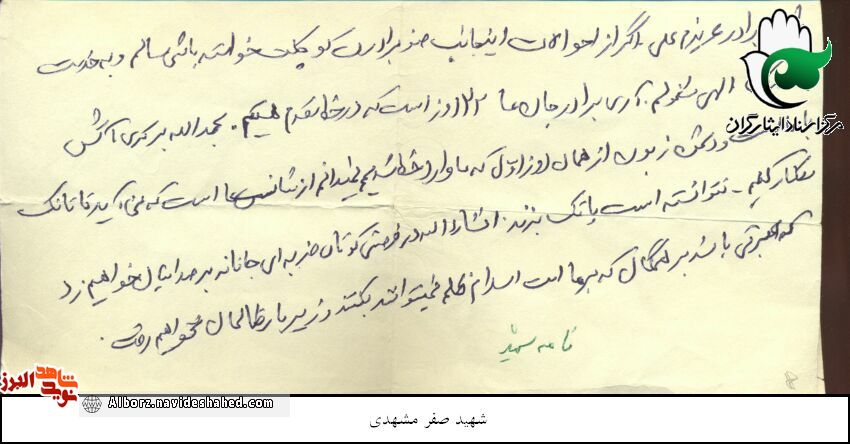 برادر عزیزم علی، اگر از احوالات اینجانب صفر برادرت کوچکت خواسته باشی سالم و به خدمت
الهی مشغولم. آری برادر جان ما ۱۲۲ روز است که در خط مقدم هستیم. بحمدالله به کوری
و دشمن زبون از همان روز اول که ما وارد خط شدیم نمیدانم از شانس ما است که
نتوانسته است پاتک بزند. انشاءالله در فرصتی کوتاه ضربه‌ای جانانه بر صدامیان خواهیم زد
که عبرتی باشد بر همگان که بر ما امت اسلام ظلم نمیتوانند بکنند و زیر بار ظالمان نخواهیم رفت.
نامه شهید
مرکز اسناد ایثارگران
نوید شاهد البرز
Alborz.navideshahed.com
شهید صفر مشهدی